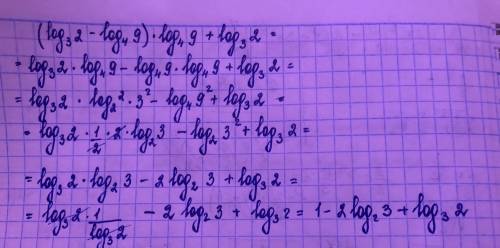 (log₃2 - log₄9) · log₄9 + log₃2 =
= log₃2 · log₄9 - log₄9 · log₄9 + log₃2 =
= log₃2 · log₂² · 3² - log₄9² + log₃2 =
= log₃2 · 1/2 · 2 · log₂3 - log₂3² + log₃2 =
= log₃2 · log₂3 - 2 log₂3 + log₃2 =
= log₃2 · 1/log₃2 - 2 log₂3 + log₃2 = 1 - 2 log₂3 + log₃2